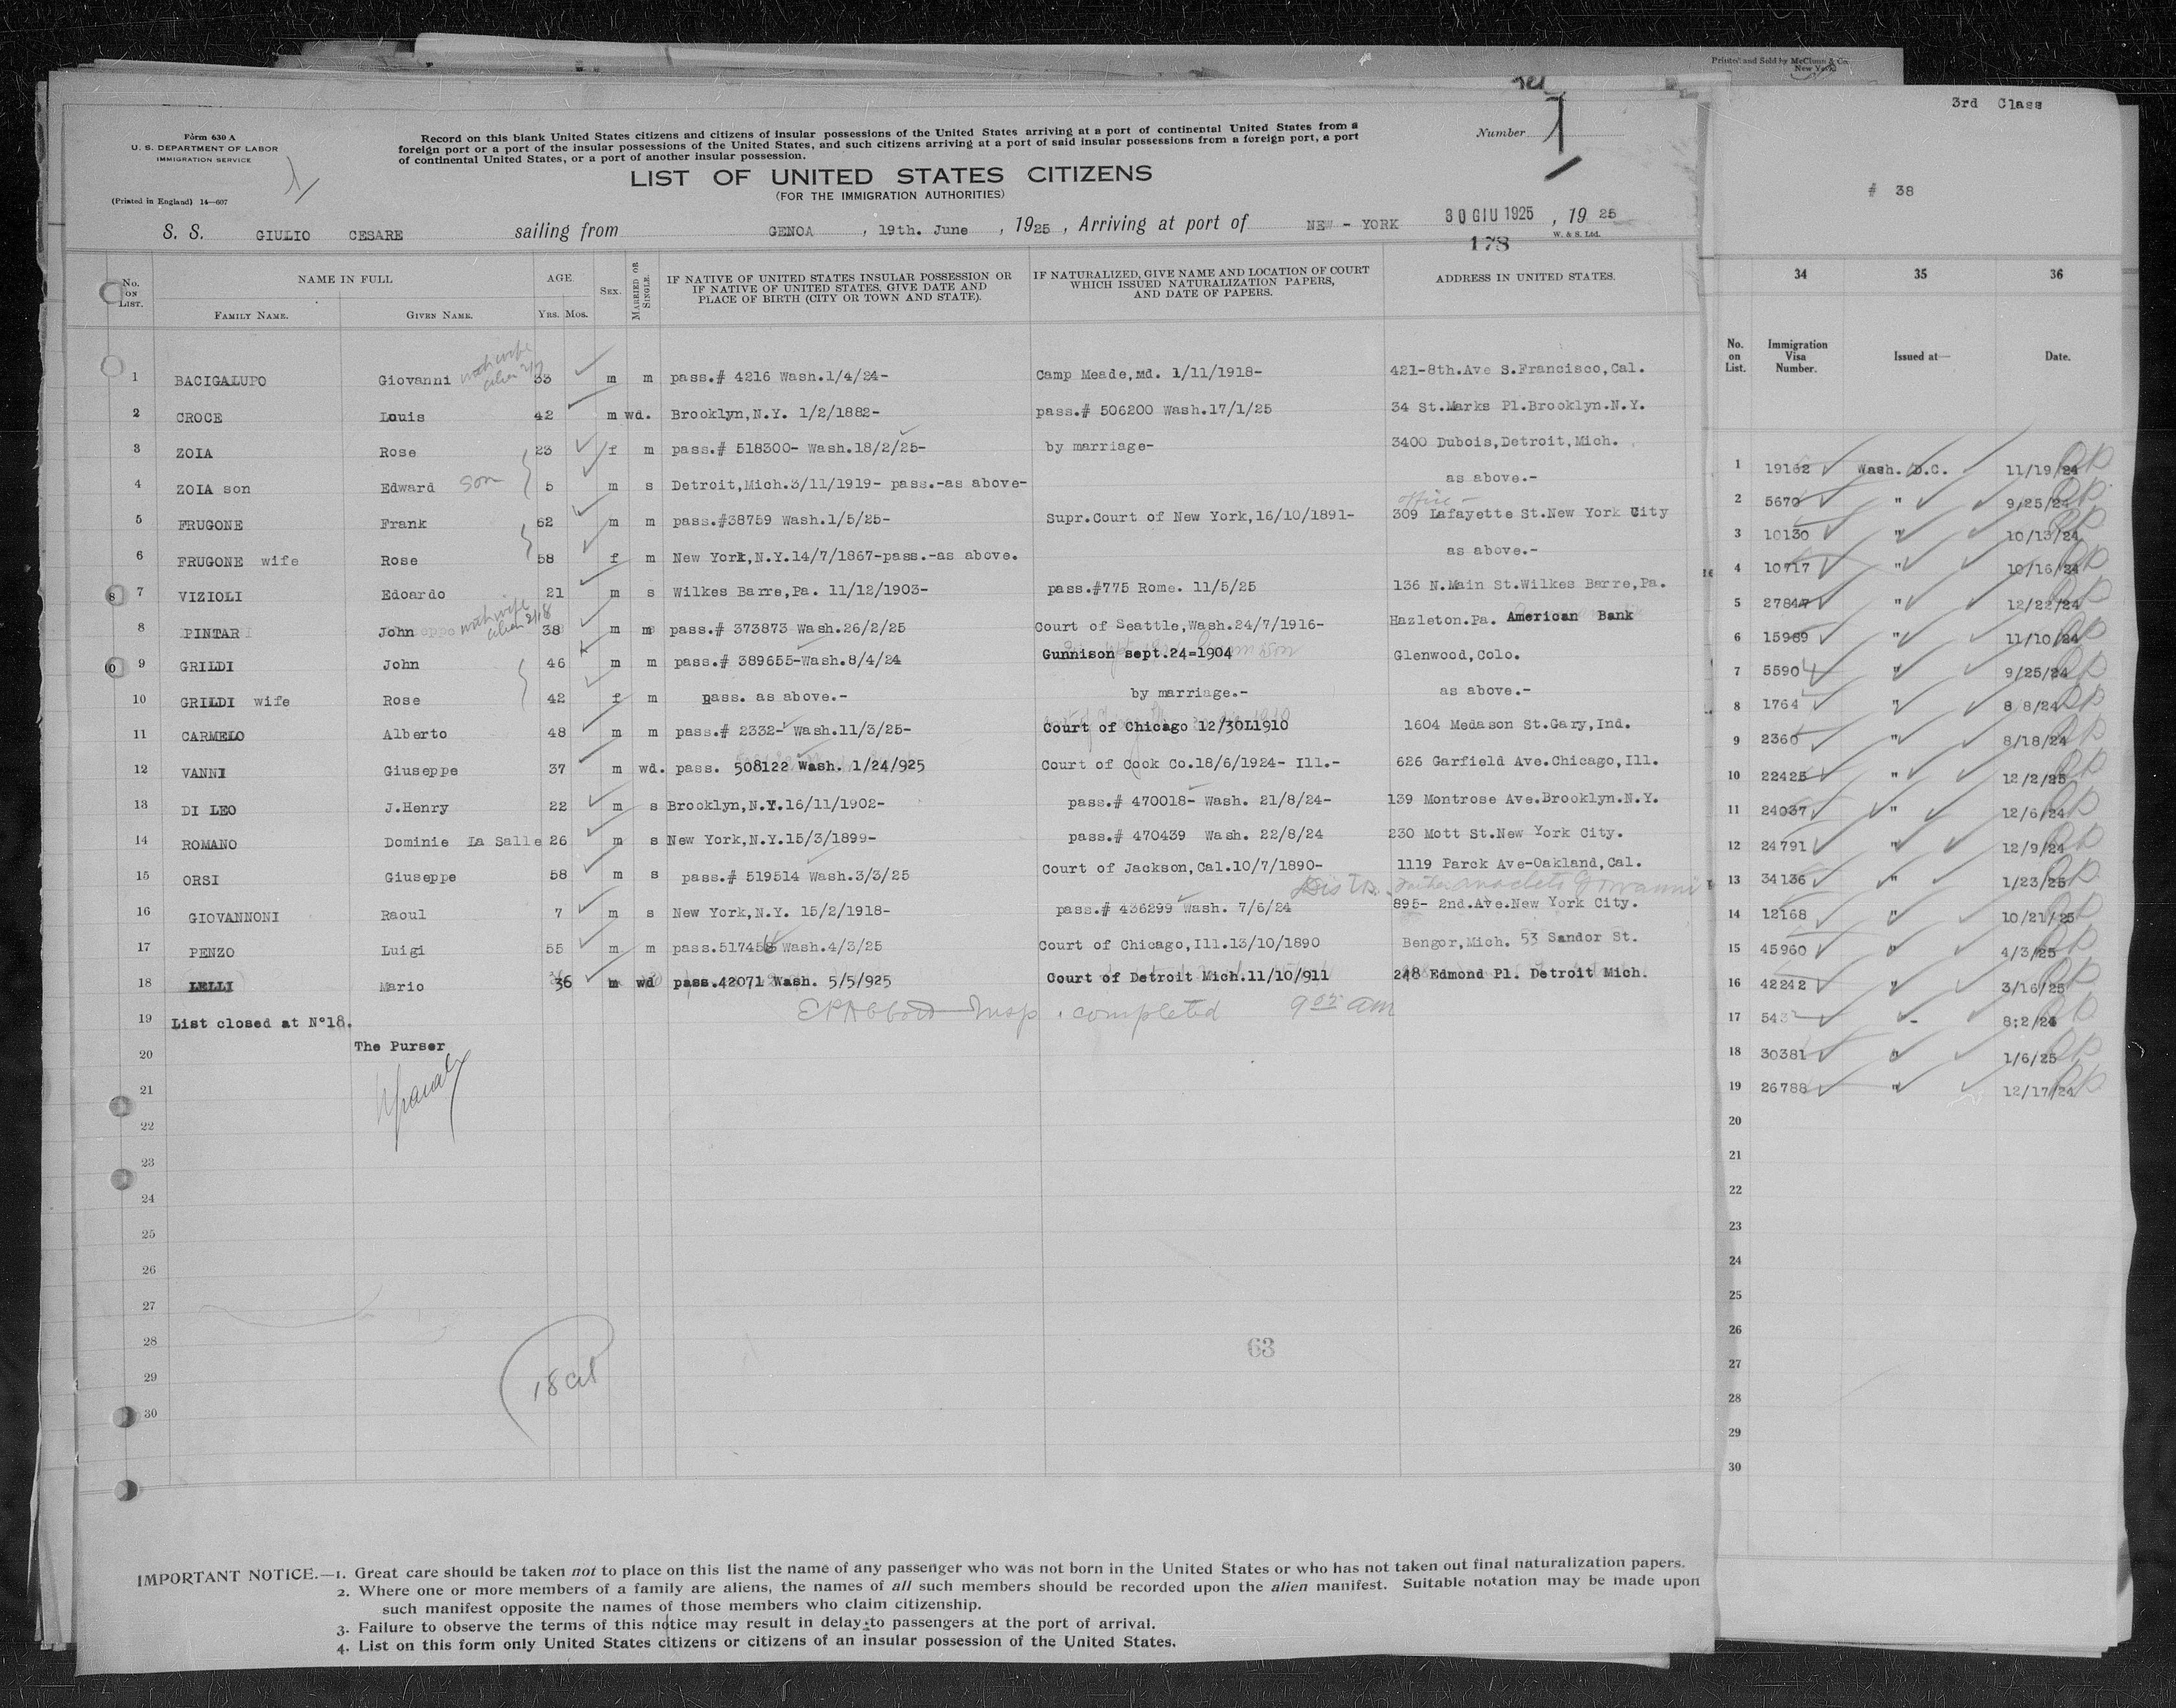 Printed and Sold by McClunn & Co.
New York
3rd Class
Form 630 A
U. S. DEPARTMENT OF LABOR
IMMIGRATION SERVICE
(Printed in England) 14—607
Record on this blank United States citizens and citizens of insular possessions of the United States arriving at a port of continental United States from a
foreign port or a port of the insular possessions of the United States, and such citizens arriving at a port of said insular possessions from a foreign port, a port
of continental United States, or a port of another insular possession.
Number 1
LIST OF UNITED STATES CITIZENS
(FOR THE IMMIGRATION AUTHORITIES)
# 38
S. S. GIULIO CESARE sailing from GENOA , 19th. June , 1925 , Arriving at port of NEW - YORK 30 GIU 1925 , 19 25
W. & S. Ltd.
178
No. ON LIST. NAME IN FULL AGE SEX. MARRIED OR SINGLE. IF NATIVE OF UNITED STATES INSULAR POSSESSION OR IF NATIVE OF UNITED STATES, GIVE DATE AND PLACE OF BIRTH (CITY OR TOWN AND STATE). IF NATURALIZED, GIVE NAME AND LOCATION OF COURT WHICH ISSUED NATURALIZATION PAPERS, AND DATE OF PAPERS. ADDRESS IN UNITED STATES.
FAMILY NAME. GIVEN NAME. YRS. MOS.
1 BACIGALUPO Giovanni with wife alien 2/7 33 m m pass.# 4216 Wash.1/4/24- Camp Meade,Md. 1/11/1918- 421-8th.Ave S.Francisco,Cal.
2 CROCE Louis 42 m wd. Brooklyn,N.Y. 1/2/1882- pass.# 506200 Wash.17/1/25 34 St.Marks Pl.Brooklyn.N.Y.
3 ZOIA Rose 23 f m pass.# 518300- Wash.18/2/25- by marriage- 3400 Dubois,Detroit,Mich.
4 ZOIA son Edward son 5 m s Detroit,Mich.3/11/1919- pass.-as above- as above.-
office -
5 FRUGONE Frank 62 m m pass.#38759 Wash.1/5/25- Supr.Court of New York,16/10/1891- 309 Lafayette St.New York City
6 FRUGONE wife Rose 58 f m New York,N.Y.14/7/1867-pass.-as above. as above.-
7 VIZIOLI Edoardo 21 m s Wilkes Barre,Pa. 11/12/1903- pass.#775 Rome. 11/5/25 136 N.Main St.Wilkes Barre,Pa.
8 PINTAR John with wife alien 2/18 38 m m pass.# 373873 Wash.26/2/25 Court of Seattle,Wash.24/7/1916- Hazleton.Pa. American Bank
9 GRILDI John 46 m m pass.# 389655-Wash.8/4/24 Gunnison sept.24=1904 Glenwood,Colo.
10 GRILDI wife Rose 42 f m pass. as above.- by marriage.- as above.-
11 CARMELO Alberto 48 m m pass.# 2332- Wash.11/3/25- Court of Chicago 12/30L1910 1604 Medason St.Gary,Ind.
12 VANNI Giuseppe 37 m wd. pass. 508122 Wash. 1/24/925 Court of Cook Co.18/6/1924- Ill.- 626 Garfield Ave.Chicago,Ill.
13 DI LEO J.Henry 22 m s Brooklyn,N.Y.16/11/1902- pass.# 470018- Wash. 21/8/24- 139 Montrose Ave.Brooklyn.N.Y.
14 ROMANO Dominie La Salle 26 m s New York,N.Y.15/3/1899- pass.# 470439 Wash. 22/8/24 230 Mott St.New York City.
15 ORSI Giuseppe 58 m s pass.# 519514 Wash.3/3/25 Court of Jackson,Cal.10/7/1890- 1119 Parck Ave-Oakland,Cal.
father Anacleto Giovanni
16 GIOVANNONI Raoul 7 m s New York,N.Y. 15/2/1918- pass.# 436299 Wash. 7/6/24 895- 2nd.Ave.New York City.
17 PENZO Luigi 55 m m pass.517458 Wash.4/3/25 Court of Chicago,Ill.13/10/1890 Bengor,Mich. 53 Sandor St.
18 LELLI Mario 36 m wd pass.42071 Wash. 5/5/925 Court of Detroit Mich.11/10/911 248 Edmond Pl. Detroit Mich.
Insp. completed 9 05 am
19 List closed at N°18.
The Purser
20
21
22
23
24
25
26
27
28
29
30
63
18 cit
34 35 36
No. on List. Immigration Visa Number. Issued at— Date.
1 19162 Wash. D.C. 11/19/24
2 5670 " 9/25/24
3 10130 " 10/13/24
4 10717 " 10/16/24
5 27847 " 12/22/24
6 15989 " 11/10/24
7 5590 " 9/25/24
8 1764 " 8 8/24
9 2360 " 8/18/24
10 22425 " 12/2/25
11 24037 " 12/6/24
12 24791 " 12/9/24
13 34136 " 1/23/25
14 12168 " 10/21/25
15 45960 " 4/3/25
16 42242 " 3/16/25
17 - 8:2/24
18 30381 " 1/6/25
19 26788 " 12/17/24
20
21
22
23
24
25
26
27
28
29
30
IMPORTANT NOTICE.—1. Great care should be taken not to place on this list the name of any passenger who was not born in the United States or who has not taken out final naturalization papers.
2. Where one or more members of a family are aliens, the names of all such members should be recorded upon the alien manifest. Suitable notation may be made upon
such manifest opposite the names of those members who claim citizenship.
3. Failure to observe the terms of this notice may result in delay to passengers at the port of arrival.
4. List on this form only United States citizens or citizens of an insular possession of the United States.